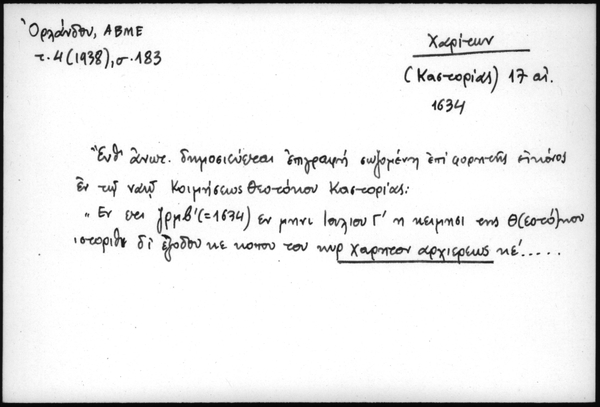 Ὀρλάνδου, ΑΒΜΕ
τ. 4 (1938), σ. 183
Χαρίτων
(Καστοριάς) 17 αἰ.
1634
Ἔνθ' ἄνωτ. δημοσιεύεται ἐπιγραφή σωζομένη ἐπί φορητῆς εἰκόνος
ἐν τῷ ναῷ Κοιμήσεως Θεοτόκου Καστοριᾶς:
"Εν ετι ζρμβ' (=1634) εν μηνι Ιουλιου Γ' η κειμησι της Θ(εοτό)κου
ιστοριθε δι εξοδου κε κοπου του κυρ Χαρητον αρχιερεως κέ.....